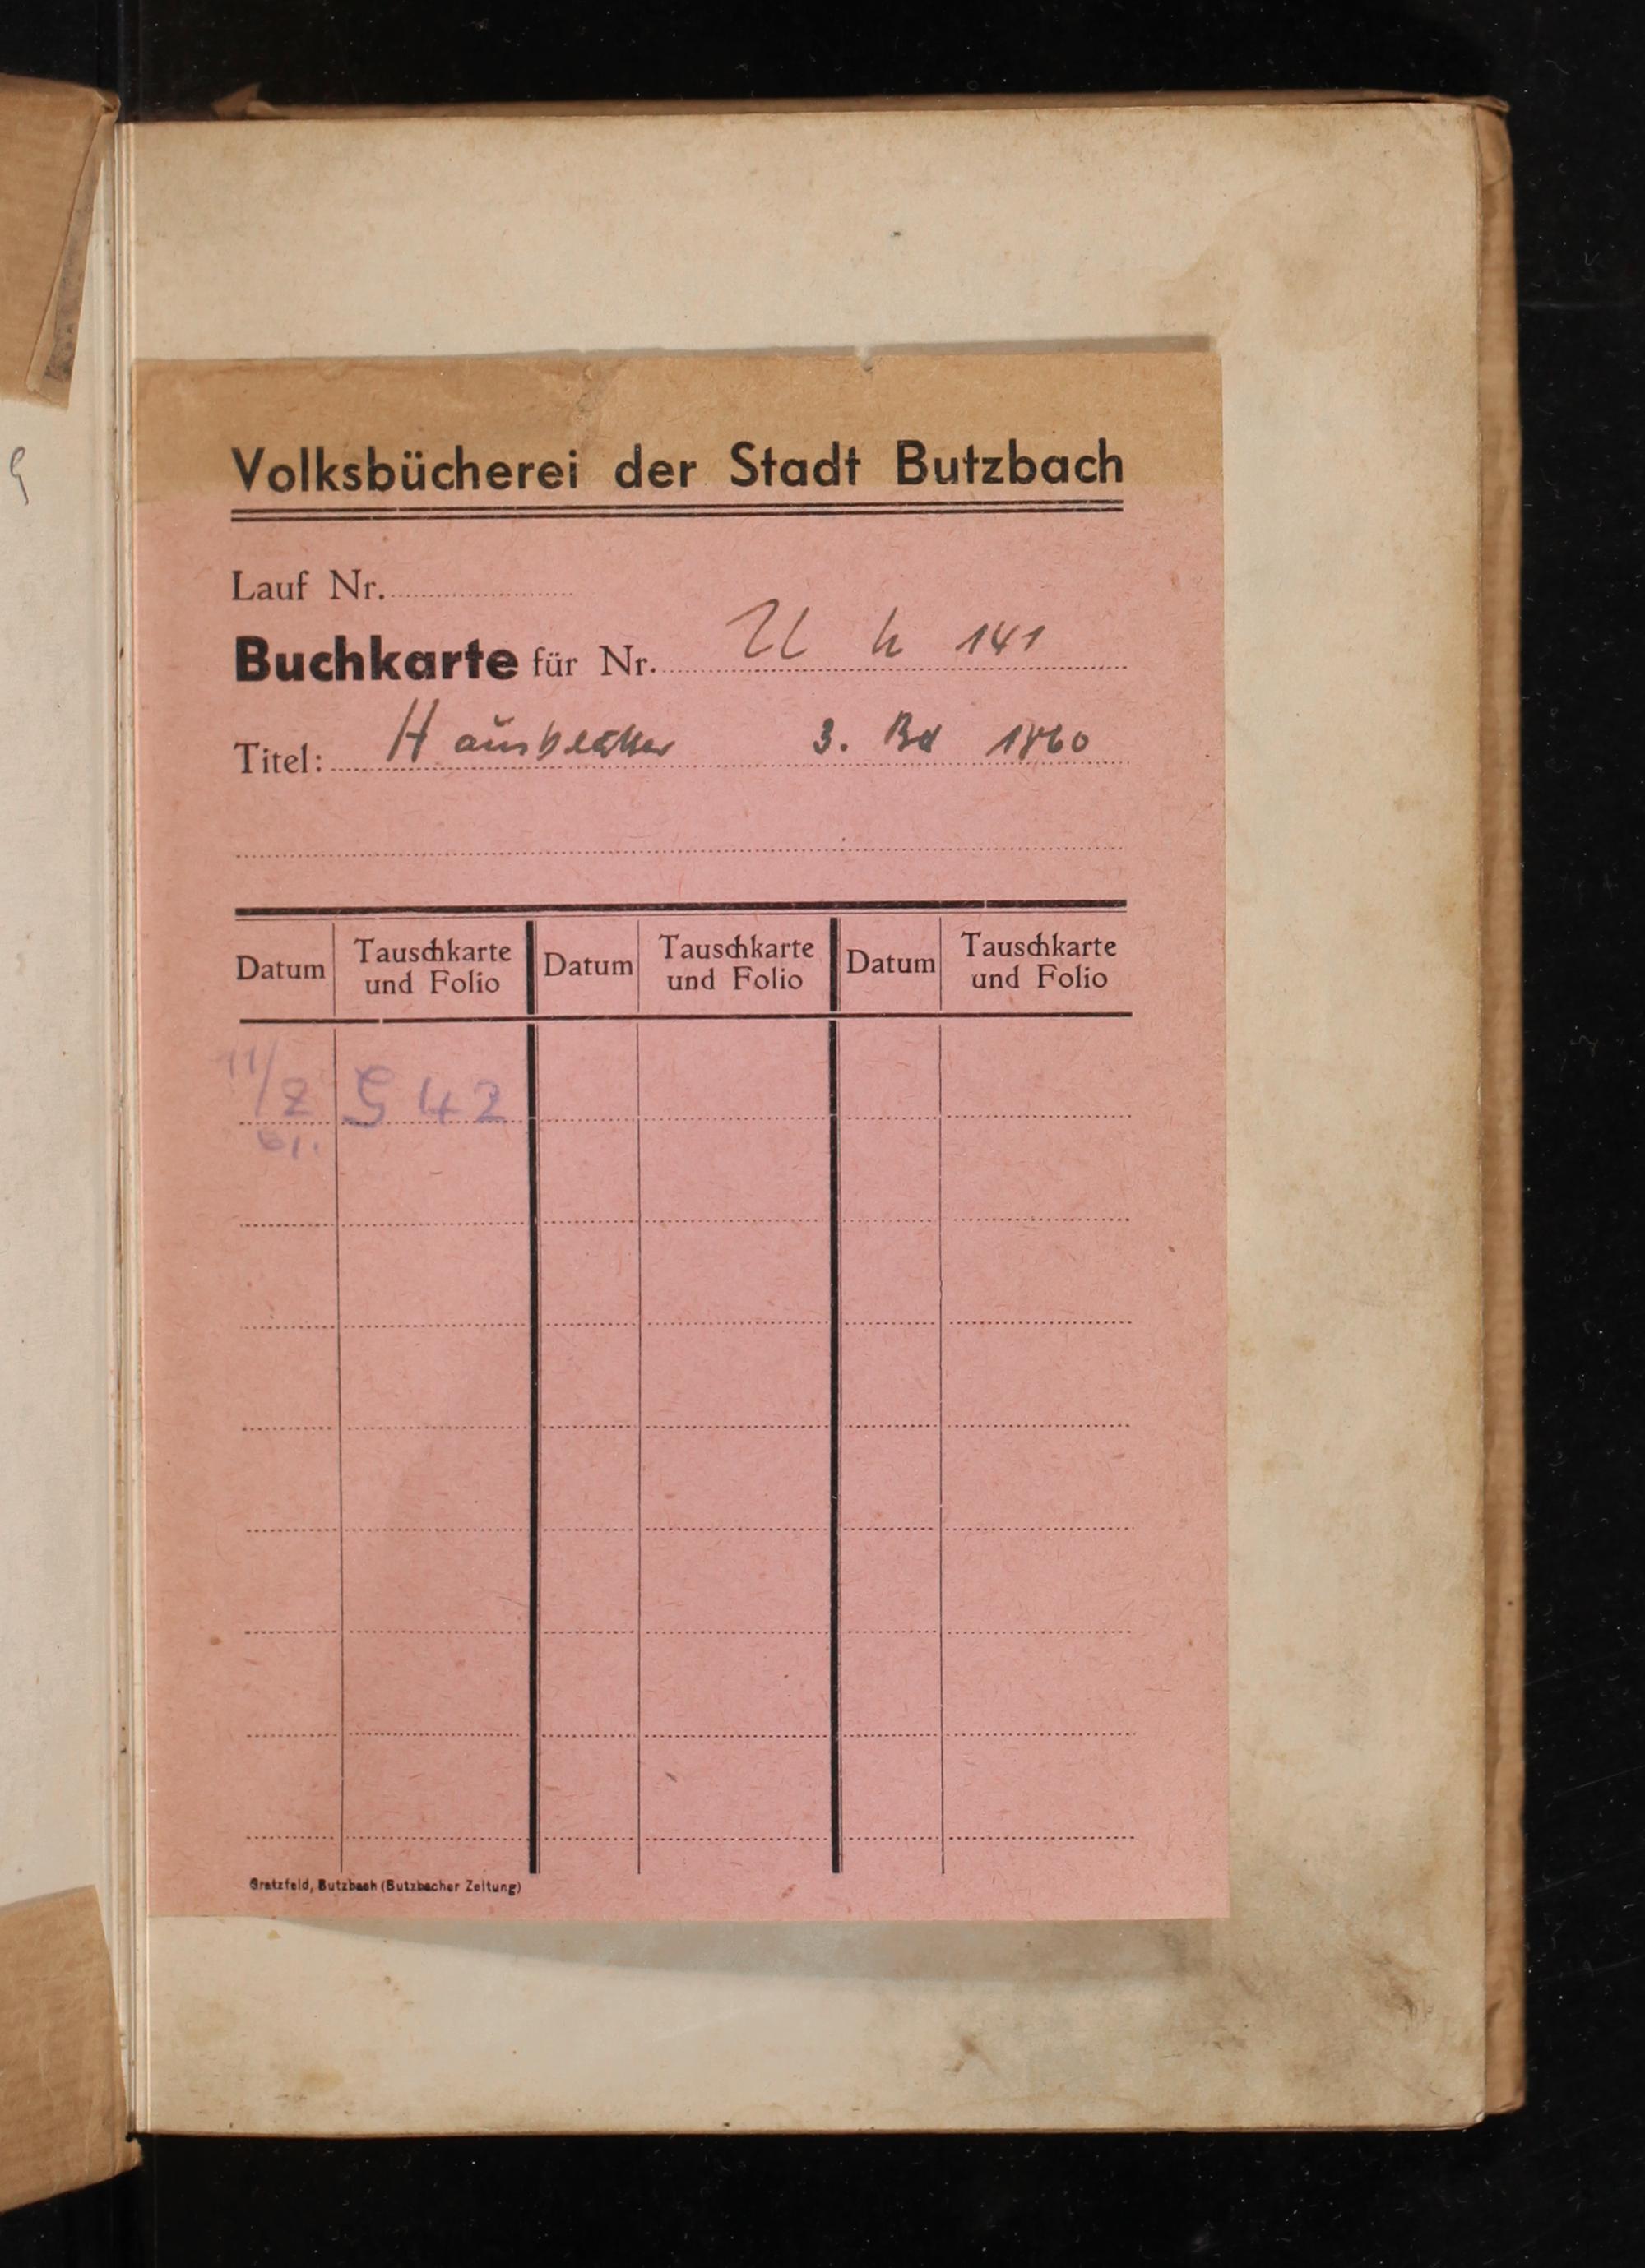 Volksbücherei der Stadt Butzbach
Lauf Nr.
Buchkarte für Nr. U h 141
Titel: Hausblätter 3. Bd 1860
Datum Tauschkarte und Folio Datum Tauschkarte und Folio Datum Tauschkarte und Folio
11/2 S 42
61.
Gratzfeld, Butzbach (Butzbacher Zeitung)